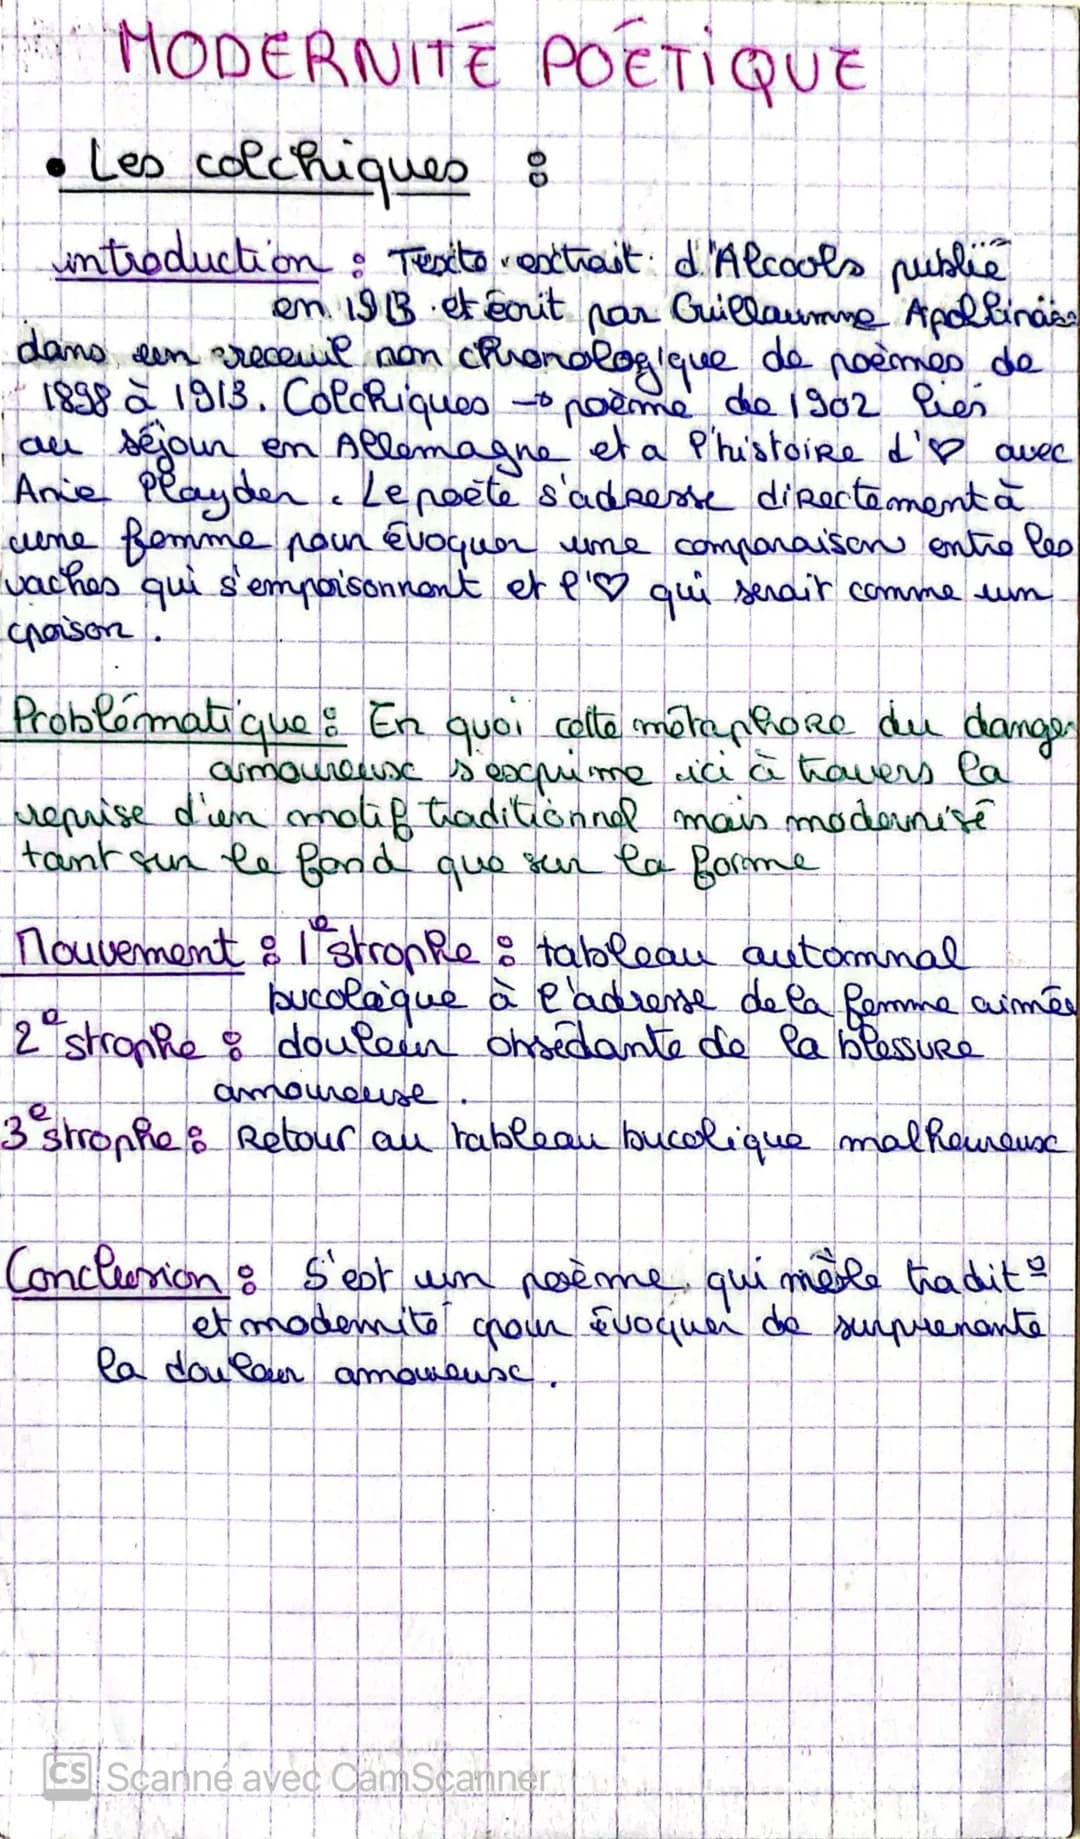 MODERNITÉ POÉTIQUE
• Les colchiques :
introduction : Texte extrait d'Alcools publié
en 1913 et écrit par Guillaumme Apollinaire
dans un receuil non chronologique de poèmes de
1898 à 1913. Colchiques → poème de 1902 liés
au séjour en Allemagne et a l'histoire d'♡ avec
Anie Playden. Le poète s'adresse directement à
une femme pour évoquer une comparaison entre les
vaches qui s'empoisonnent et l'♡ qui serait comme un
poison.
Problématique : En quoi cette métaphore du danger
amoureux s'exprime ici à travers la
reprise d'un motif traditionnel mais modernisé
tant sur le fond que sur la forme
Mouvement : 1e strophe : tableau automnal
bucolique à l'adresse de la femme aimée
2e strophe : douleur obsédante de la blessure
amoureuse.
3e strophe : Retour au tableau bucolique malheureux
Conclusion : S'est un poème qui mèle tradit°
et modernité pour évoquer de surprenante
la douleur amoureuse.
CS Scanné avec CamScanner